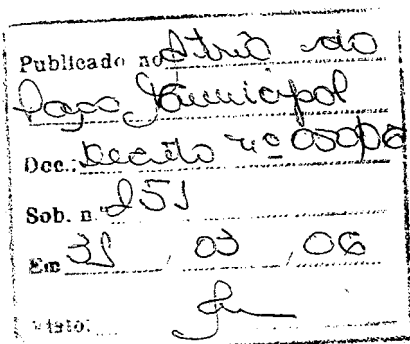 Publicado no Átrio do
Paço Municipal
Doc.: Decreto nº 050/06
Sob. n. 251
Em 31 / 03 / 06
Visto: